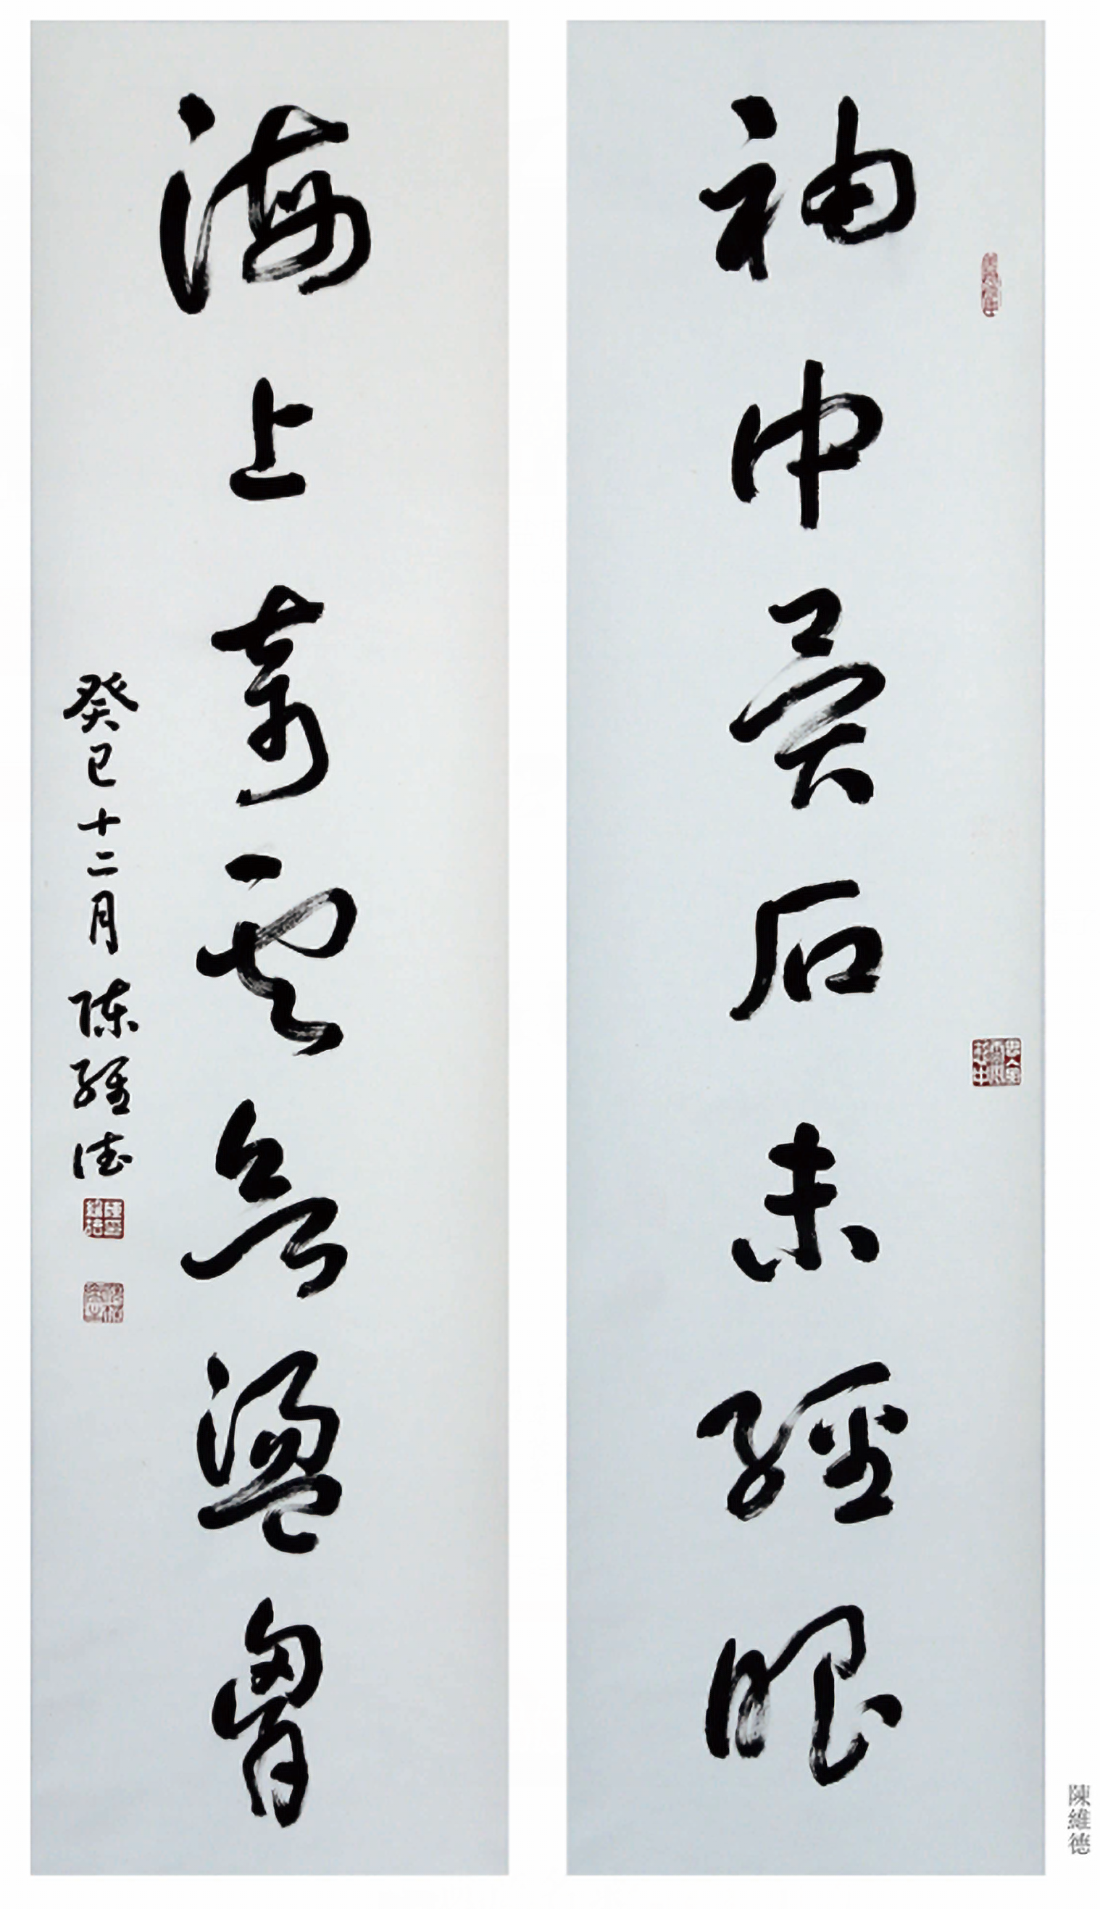 袖中異石未經眼
海上奇雲欲盪胷
癸巳十二月 陳維德
陳維德